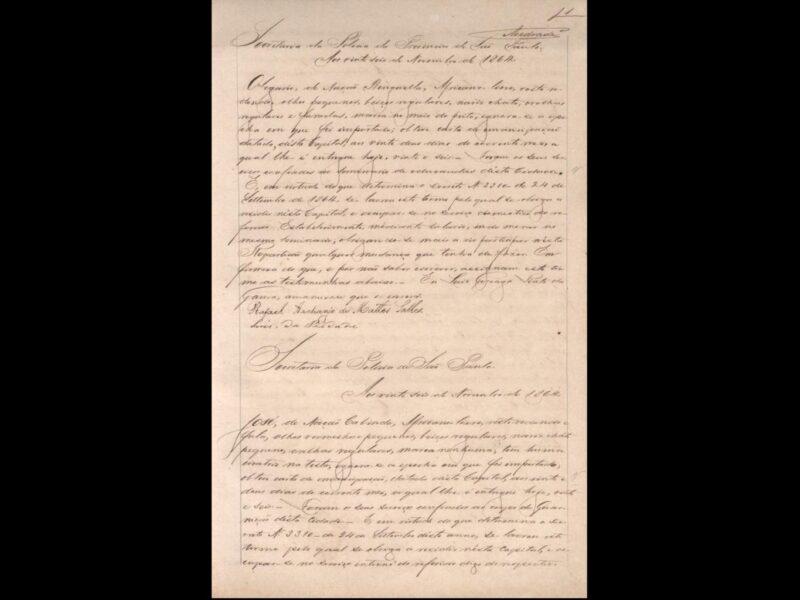 Andrade
Secretaria da Policia da Provincia de São Paulo,
Aos vinte seis de Novembro de 1864.
Olegario, de Nação Benguella, Africano livre, rosto re-
dondo, olhos pequenos, beiços regulares, nariz chato, orelhas
regulares e furadas, marca no mais do peito, ignora-se a epo-
cha em que foi importado; obteve carta de emancipação
datada, desta Capital, aos vinte dous dias do corrente mez, a
qual lhe é entregue hoje, vinte e seis. Foram os seus ser-
viços confiados ao Seminario de educandas desta Cidade.
E, em virtude do que determina o Decreto Nº 3310 de 24 de
Setembro de 1864, se lavra este termo pelo qual se obriga a
residir nesta Capital, e occupar-se no serviço domestico do re-
ferido Estabelecimento, mediante salario,
mesmo Seminario, obrigando-se mais a participar a esta
Repartição qualquer mudança que tenha de fazer. Em
firmeza do que, e por não saber escrever, assignam este ter-
mo as testemunhas abaixo. Eu Luiz Gonzaga Pinto da
Gama, amanuense que o escrevi.
Rafael Tobias de Mattos Salles
Luis da Piedade
Secretaria da Policia de São Paulo.
Aos vinte seis de Novembro de 1864
José, de Nação Cabinda, Africano livre, rosto redondo e
fulo, olhos vermelhos e pequenos, beiços regulares, nariz chato
pequeno, orelhas regulares, marca nenhuma, tem huma
cicatriz na testa, ignora-se a epocha em que foi importado,
obteve carta de emancipação, datada desta Capital, aos vinte e
dous dias do corrente mes, a qual lhe é entregue hoje, vinte
e seis. Foram os seus serviços confiados ao
desta Cidade. E em virtude do que determina o De-
creto Nº 3310 de 24 de Setembro deste anno, se lavrou este
termo pelo qual se obriga a residir nesta Capital, e oc-
cupar-se no serviço interno do referido